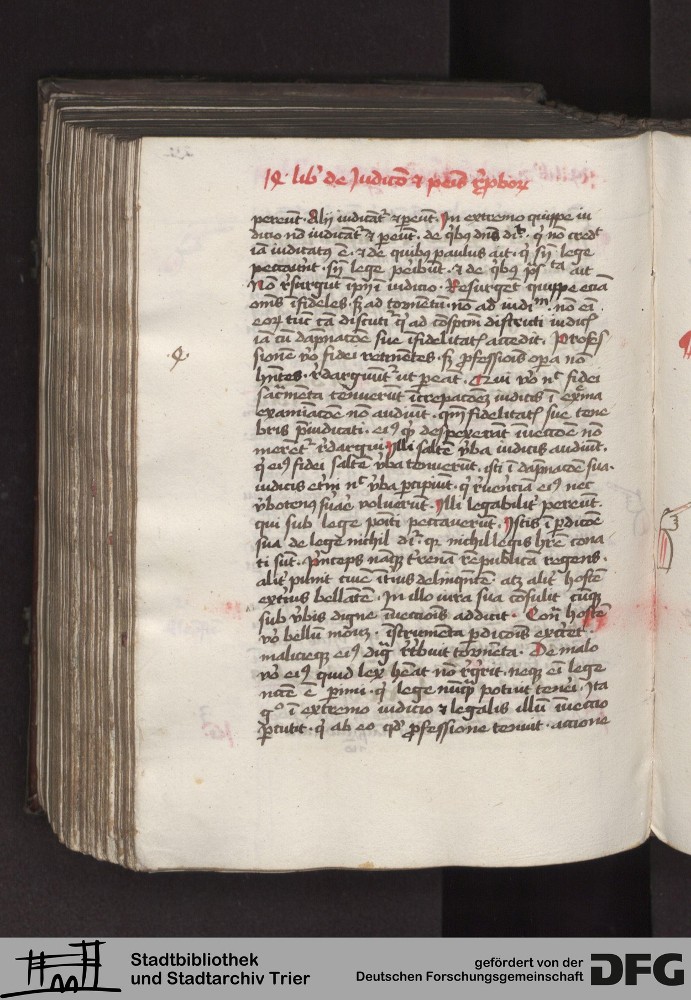 lib' de Judicio et penis
pereunt. Alij iudicantur et pereunt. In extremo quippe iu
dicio non iudicantur et pereunt. de quibus dominus dicit. qui non credit
iam iudicatus est. et de quibus paulus ait. qui sine lege
peccaverunt. sine lege peribunt. et de quibus psalmista ait
Non resurgunt impij in iudicio. Resurget quippe etiam
omnes infideles. sed ad tormentum. non ad iudicium. non enim
eorum tunc causa discutitur quia ad conspectum districti iudicis
iam cum dampnatione sue infidelitatis accedit. Profes
sionem vero fidei retinentes. sed professionis opera non
habentes. redarguuntur ut pereant. Qui vero nec fidei
sacramenta tenuerunt increpationem iudicis in extrema
examinatione non audiunt. quoniam infidelitatis sue tene
bris preiudicati. eius quem despexerant invectione non
merentur redargui. Illi saltem verba iudicis audiunt.
qui eius fidei saltem verba tenuerunt. isti in dampnatione sua.
iudicis eterni nec verba percipiunt. quia reverentiam eius nec
verbotenus servare voluerunt. Illi legabiliter pereunt.
qui sub lege positi peccaverunt. Istis in perditione
sua de lege nichil dicitur. quia nichil legis habere cona
ti sunt. Princeps namque terrenam rem publicam regens.
aliter punit civem interius delinquentem. atque aliter hostem
exterius bellantem. In illo iura sua consulit eumque
sub verbis digne invectionis addicit. Contra hostem
vero bellum movet. instrumenta perditionis exercet.
malicieque eius digna retribuit tormenta. De malo
vero eius quid lex habeat non requirit. neque enim lege
necesse est perimi. qui lege nunquam potuit teneri. Ita
ergo in extremo iudicio et legalis illum invectio
percutit. qui ab eo quod professione tenuit. actione
Stadtbibliothek
und Stadtarchiv Trier
gefördert von der
Deutschen Forschungsgemeinschaft
DFG